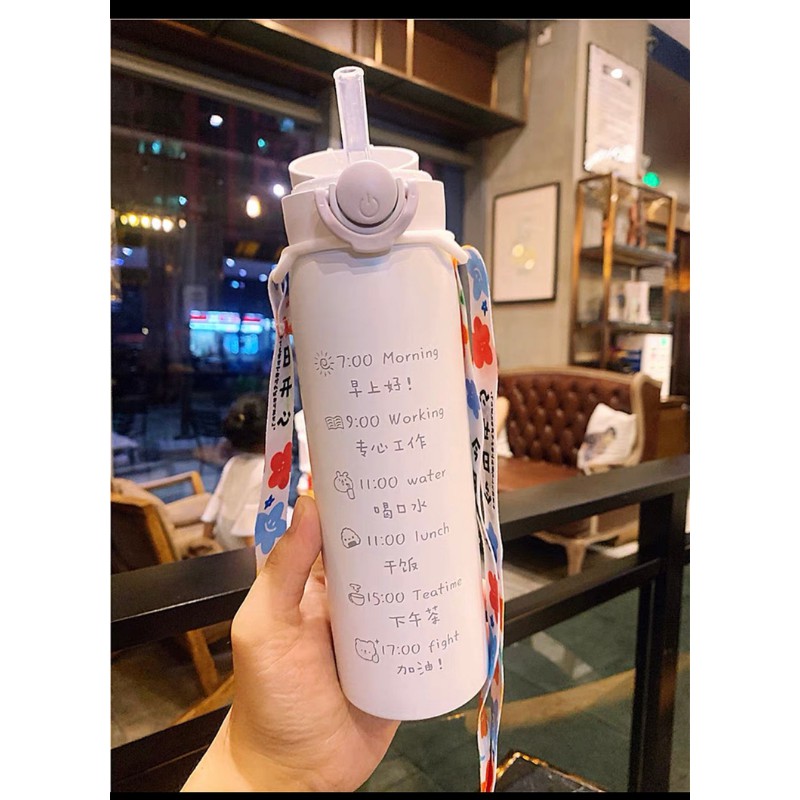 7:00 Morning
早上好!
9:00 Working
专心工作
11:00 water
喝口水
11:00 lunch
干饭
15:00 Teatime
下午茶
17:00 fight
加油!
日开心